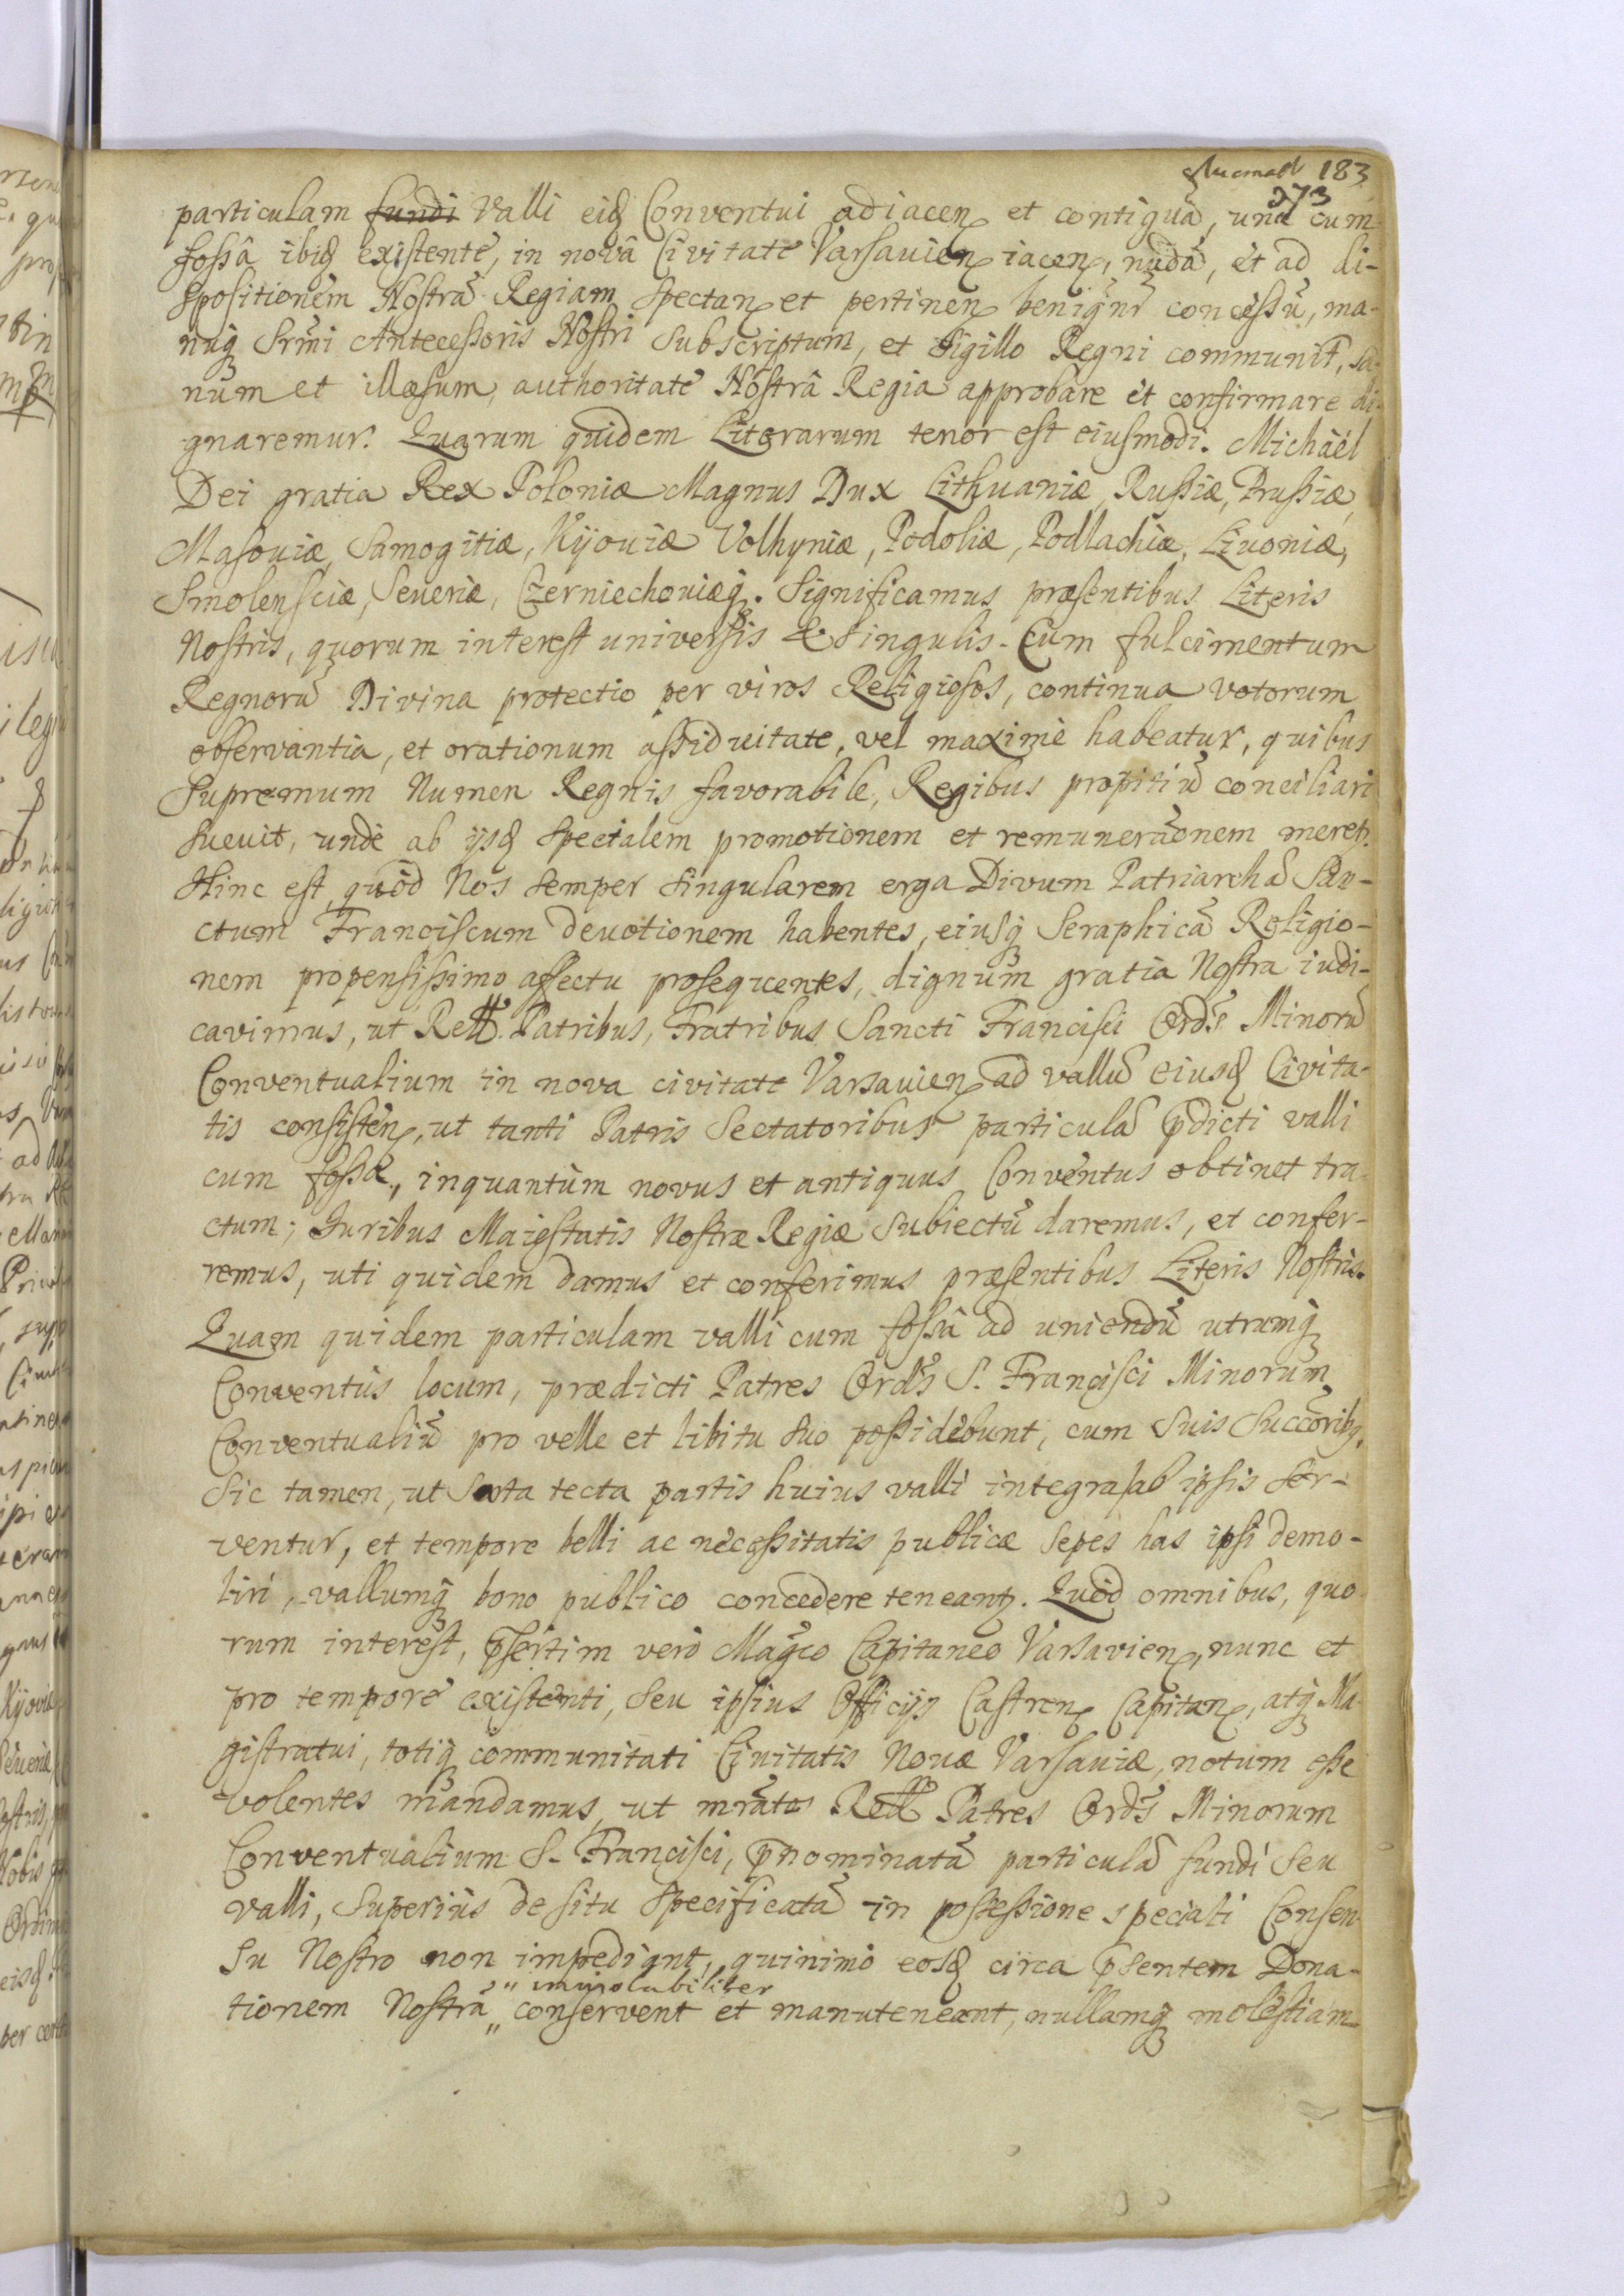 183
373
particulam fundi Valli eiq₃ Conventui adiacen et contiguã, unà cum
fossâ ibiq₃ existente, in novâ Civitate Varsavien iacen, nudã, et ad di-
spositionem Nostrã Regiam spectan et pertinen benignè concessũ, ma-
nuq₃ Srm̃i Antecessoris Nostri subscriptum, et sigillo Regni communit, sa-
num et illæsum, authoritate Nostrâ Regia approbare et confirmare di-
gnaremur. Quarum quidem Literarum tenor est eiusmodi. Michaël
Dei gratia Rex Poloniæ Magnus Dux Lithuaniæ, Russiæ, Prussiæ,
Masoviæ, Samogitiæ, Kijoviæ Volhyniæ, Podoliæ, Podlachiæ, Livoniæ,
Smolensciæ, Severiæ, Czerniechoviæq₃. Significamus præsentibus Literis
Nostris, quorum interest universis & singulis. Cum fulcimentum
Regnorũ Divina protectio per viros Religiosos, continua votorum
observantia, et orationum assiduitate, vel maximè habeatur, quibus
Supremum Numen Regnis favorabile, Regibus propitiũ conciliari
suevit, undè ab ijsq₃ specialem promotionem et remunerãonem meret₃.
Hinc est, quòd Nos semper singularem erga Divum Patriarchã San-
ctum Franciscum devotionem habentes, eiusq₃ Seraphicã Religio-
nem propensissimo affectu prosequentes, dignum gratia Nostra iudi-
cavimus, ut Rell. Patribus, Fratribus Sancti Francisci Ordĩs Minorũ
Conventualium in nova civitate Varsavien ad vallũ eiusq₃ Civita-
tis consisten, ut tanti Patris Sectatoribus particulã p̃dicti valli
cum fossæ, inquantùm novus et antiquus Conventus obtinet tra-
ctum; Iuribus Maiestatis Nostræ Regiæ subiectũ daremus, et confer-
remus, uti quidem damus et conferimus præsentibus Literis Nostris.
Quam quidem particulam valli cum fossâ ad uniendũ utrumq₃
Conventûs locum, prædicti Patres Ordĩs S. Francisci Minorum
Conventualiũ pro velle et libitu suo possidebunt, cum suis Succõribq₃.
Sic tamen, ut sarta tecta partis huius valli integra ab ipsis ser-
ventur, et tempore belli ac necessitatis publicæ sepes has ipsi demo-
liri, vallumq₃ bono publico concedere teneant₃. Quòd omnibus, quo
rum interest, p̃sertim verò Magco Capitaneo Varsavien, nunc et
pro tempore existenti, seu ipsius Officijs Castren Capitan, atq₃ Ma-
gistratui, totiq₃ communitati Civitatis Novæ Varsaviæ, notum esse
volentes mandamus, ut mrãtos Rell Patres Ordĩs Minorum
Conventualium S. Francisci, p̃nominatã particulã fundi seu
valli, superiùs de situ specificatã in possessione speciali Consen-
su Nostro non impediant, quinimò eosq₃ circa p̃sentem Dona-
" inviolabiliter
tionem Nostrã „ conservent et manuteneant, nullamq₃ molestiam